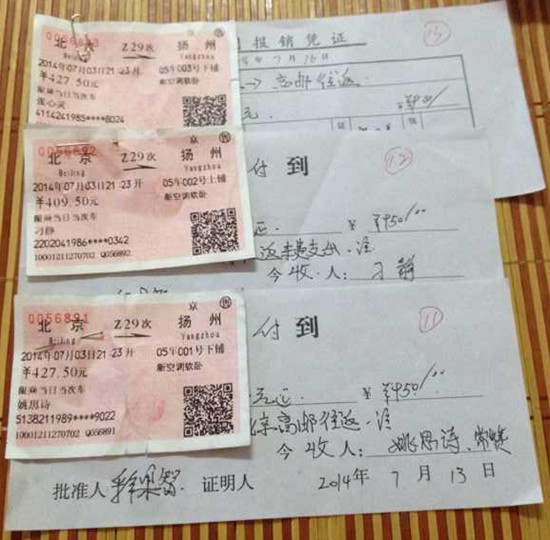 0056893
北京 Z29次 扬州
Beijing Yangzhou
2014年07月03日21:23开 05车003号下铺
¥427.50元 新空调软卧
限乘当日当次车
张心灵
4114241985****8024
报销凭证
15
年7月16日
高邮往返
元
0056892
京 售
北京 Z29次 扬州
Beijing Yangzhou
2014年07月03日21:23开 05车002号上铺
¥409.50元 新空调软卧
限乘当日当次车
刁静
2202041986****0342
10001211270702 Q056892
付到
12
¥ ¥450/00
返车费支出·注
今收人: 刁静
0056891
京 售
北京 Z29次 扬州
Beijing Yangzhou
2014年07月03日21:23开 05车001号下铺
¥427.50元 新空调软卧
限乘当日当次车
姚思诗
5138211989****9022
10001211270702 Q056891
付到
11
¥ ¥450/00
京高邮往返·注
今收人: 姚思诗、
批准人 证明人 2014年7月13日